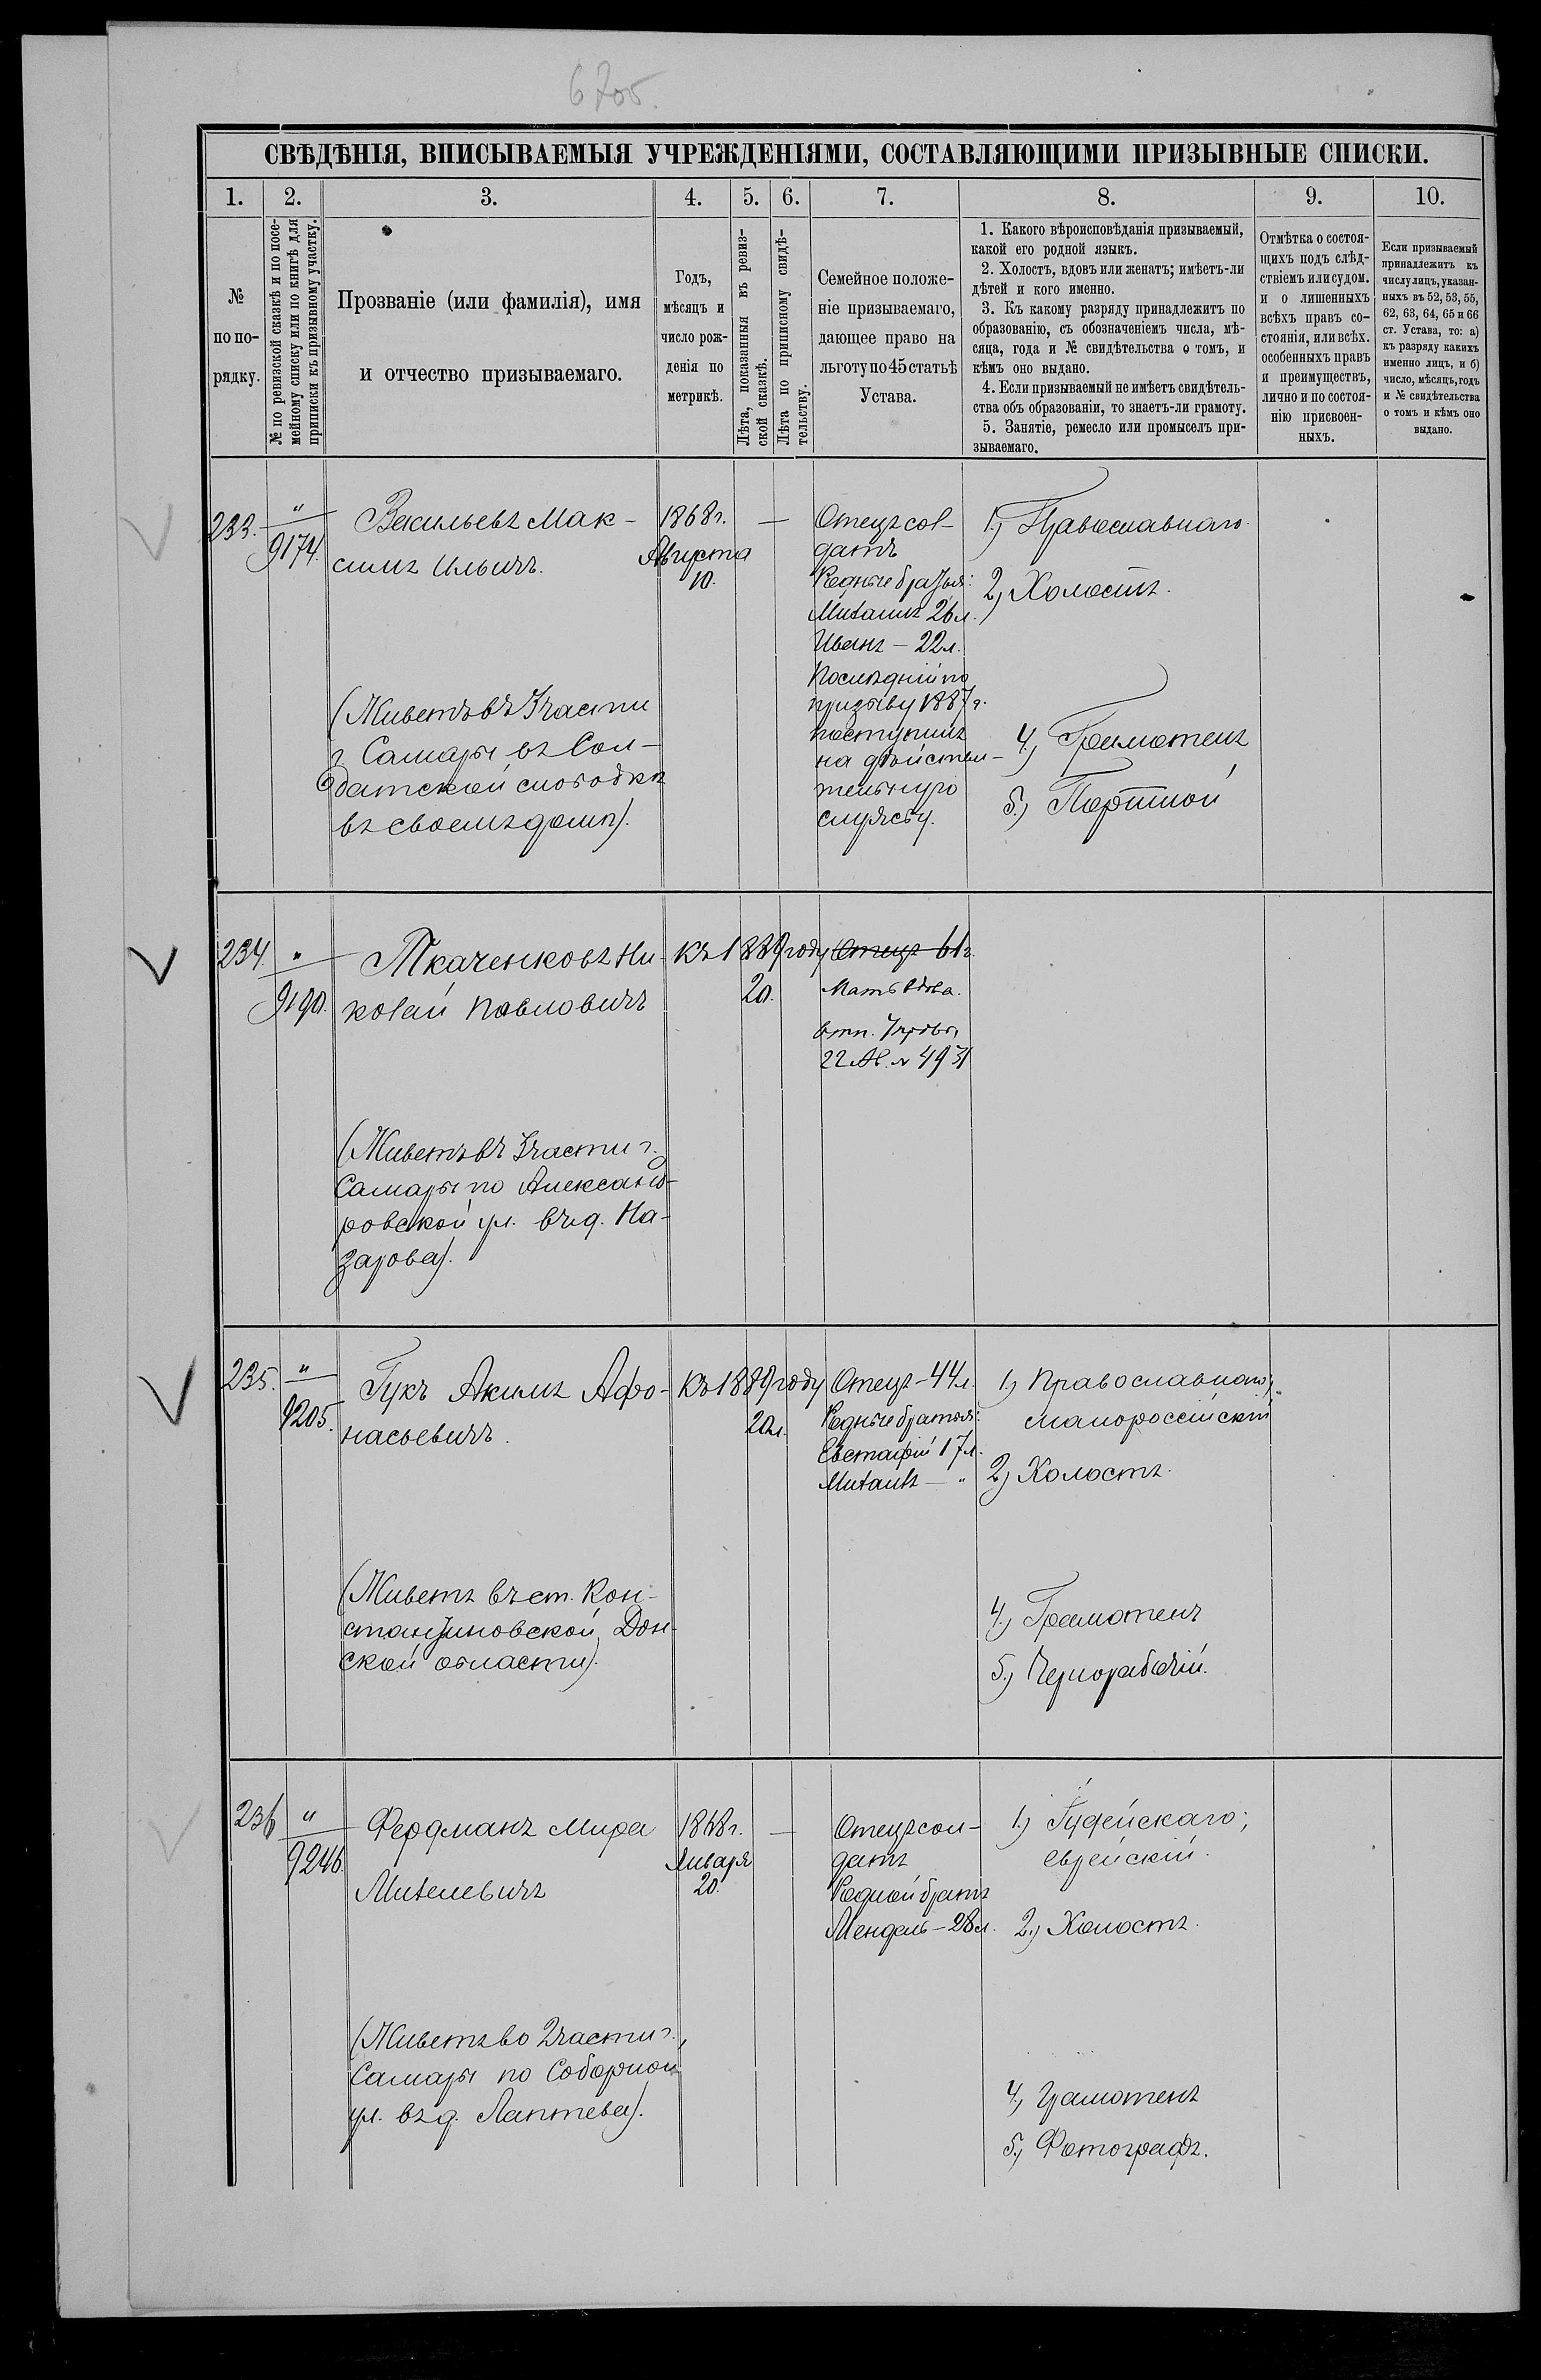 6705.
СВѢДѢНІЯ, ВПИСЫВАЕМЫЯ УЧРЕЖДЕНІЯМИ, СОСТАВЛЯЮЩИМИ ПРИЗЫВНЫЕ СПИСКИ.
1. 2. 3. 4. 5. 6. 7. 8. 9. 10.
№
по по-
рядку.
№ по ревизской сказкѣ и по посе-
мейному списку или по книгѣ для
приписки къ призывному участку.
Прозваніе (или фамилія), имя
и отчество призываемаго.
Годъ,
мѣсяцъ и
число рож-
денія по
метрикѣ.
Лѣта, показанныя въ ревиз-
ской сказкѣ.
Лѣта по приписному свидѣ-
тельству.
Семейное положе-
ніе призываемаго,
дающее право на
льготу по 45 статьѣ
Устава.
1. Какого вѣроисповѣданія призываемый,
какой его родной языкъ.
2. Холостъ, вдовъ или женатъ; имѣетъ-ли
дѣтей и кого именно.
3. Къ какому разряду принадлежитъ по
образованію, съ обозначеніемъ числа, мѣ-
сяца, года и № свидѣтельства о томъ, и
кѣмъ оно выдано.
4. Если призываемый не имѣетъ свидѣтель-
ства объ образованіи, то знаетъ-ли грамоту.
5. Занятіе, ремесло или промыселъ при-
зываемаго.
Отмѣтка о состоя-
щихъ подъ слѣд-
ствіемъ или судом.
и о лишенныхъ
всѣхъ правъ со-
стоянія, или всѣх.
особенныхъ правъ
и преимуществъ,
лично и по состоя-
нію присвоен-
ныхъ.
Если призываемый
принадлежитъ къ
числу лицъ, указан-
ныхъ въ 52, 53, 55,
62, 63, 64, 65 и 66
ст. Устава, то: а)
къ разряду какихъ
именно лицъ, и б)
число, мѣсяцъ, годъ
и № свидѣтельства
о томъ и кѣмъ оно
выдано.
233.
"
9174.
Васильевъ Мак-
симъ Ильичъ.
(Живетъ въ 3 части
г. Самары въ Сол-
датской слободкѣ
въ своемъ домѣ).
1868 г.
Августа
10.
—
Отецъ сол-
датъ
Родные братья:
Михаилъ 26 л.
Иванъ – 22 л.
Послѣдній по
призыву 1887 г.
поступилъ
на дѣйстви-
тельную
службу.
1.) Православнаго
2.) Холостъ.
4.) Грамотенъ
5.) Портной
234.
"
9190.
Ткаченковъ Ни-
колай Павловичъ
(Живетъ въ 3 части г.
Самары по Александ-
ровской ул. въ д. На-
зарова).
Къ 1889 году
20.
Отецъ 61 г.
Мать вдова.
22 № 4931
235.
"
9205.
Гукъ Акимъ Афо-
насьевичъ.
(Живетъ въ ст. Кон-
стантиновской, Дон-
ской области).
Къ 1889 году
20 л.
Отецъ – 44 л.
Родные братья:
Евстафій 17 л.
Михаилъ – "
1.) Православнаго;
малороссійскій
2.) Холостъ.
4.) Грамотенъ
5.) Чернорабочій.
236
"
9246.
Фердманъ Мира
Михелевичъ
(Живетъ во 2 части г.
Самары по Соборной
ул. въ д. Лаптева).
1868 г.
Января
20.
—
Отецъ сол-
датъ
Родной братъ
Мендель – 28 л.
1.) Іудейскаго;
еврейскій.
2.) Холостъ.
4.) Грамотенъ
5.) Фотографъ.